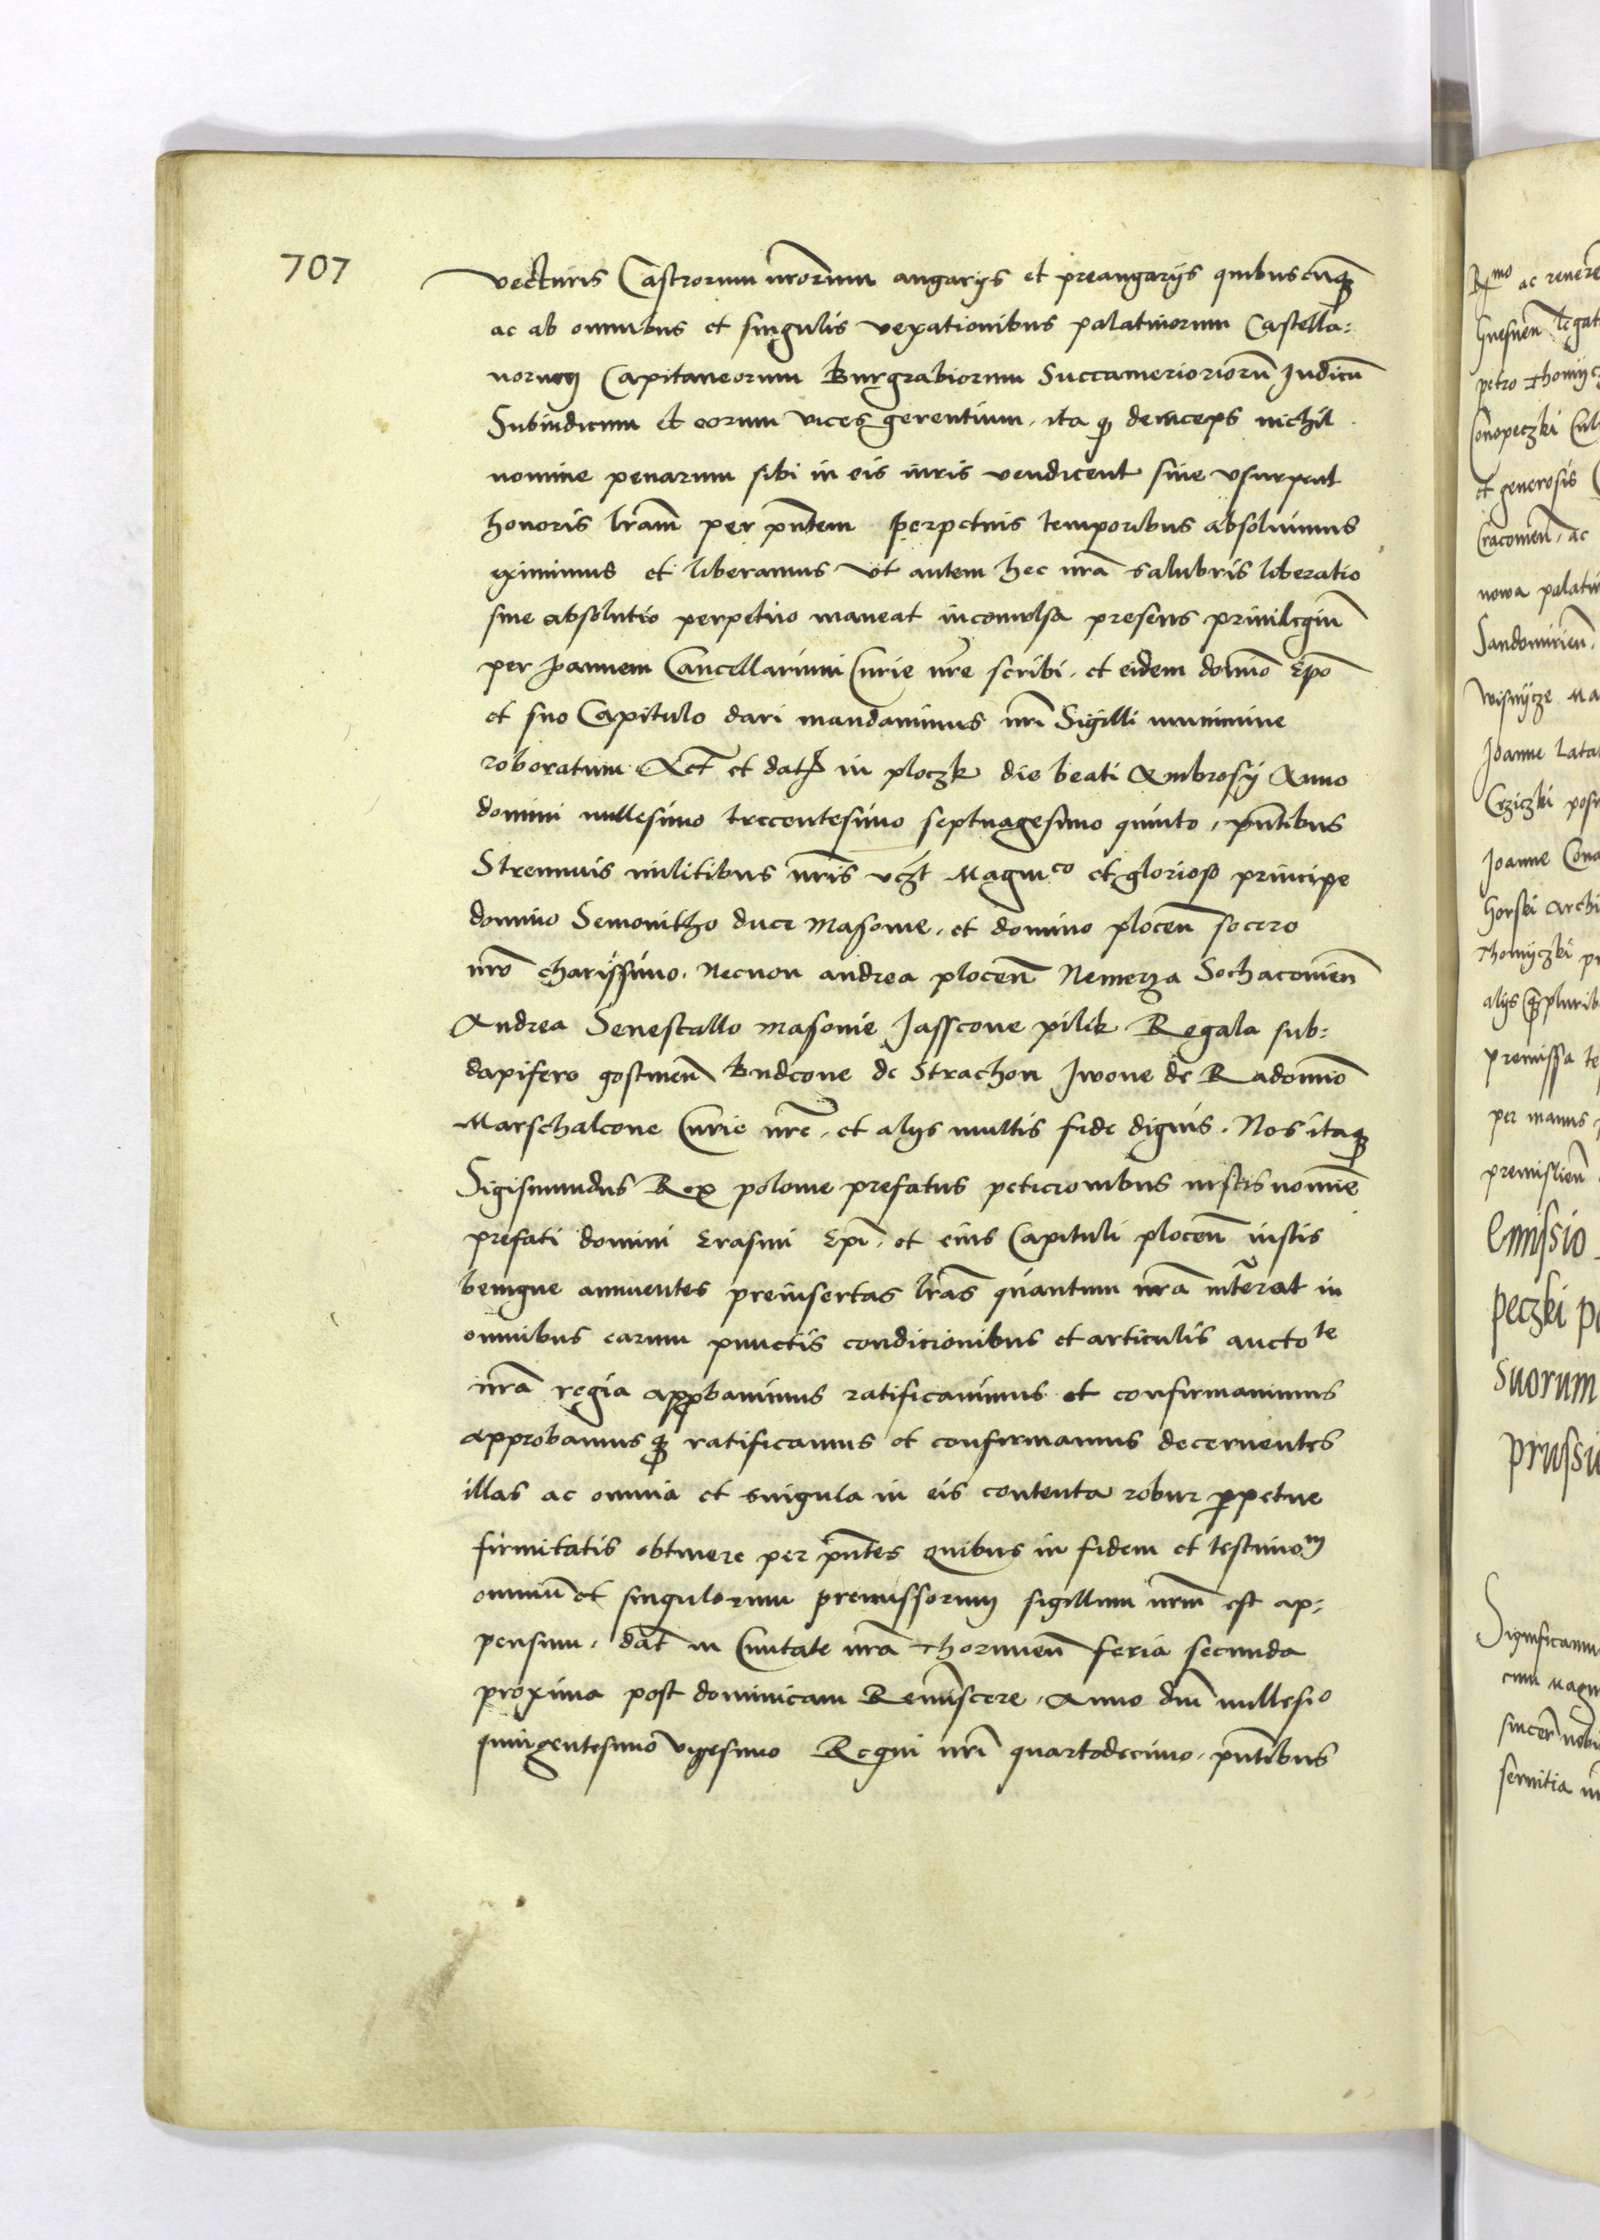 707
vecturis Castrorum nrorum angarijs et preangarijs quibuscunq
ac ab omnibus et singulis vexationibus palatinorum Castella:
norum Capitaneorum Burgrabiorum Succamerioriorum Judicu
Subiudicum et eorum vices gerentium. ita q deinceps nichil
nomine penarum sibi in eis iuris vendicent siue vsurpent
honoris lram per pntem perpetuis temporibus absoluimus
eximimus et liberamus vt autem hec nra salubris liberatio
siue absolutio perpetuo maneat inconuulsa presens priuilegiu
per Joannem Cancellarium Curie nre scribi. et eidem domno Epo
et suo Capitulo dari mandauimus nri Sigilli munimine
roboratum Act et dat in ploczk die beati Ambrosij Anno
domini millesimo trecentesimo septuagesimo quinto, pntibus
Strennuis militibus nris vczt Magnco et glorioso principe
domino Semouitho duce Masouie, et domino plocen socero
nro charissimo. Necnon andrea plocen Nemerza Sochaconien
Andrea Senescallo masouie Jasscone pilik Regala sub:
dapifero gostinen Budcone de Strachon Jwone de Radomno
Marschalcone Curie nre, et alijs multis fide dignis. Nos itaq
Sigismundus Rex polonie prefatus peticionibus iustis nomine
prefati domini Erasmi Epi, et eius Capituli plocen iustis
benigne annuentes preinsertas lras quantum nra interat in
omnibus earum punctis condicionibus et articulis auctote
nra regia approbauimus ratificauimus et confirmauimus
approbamusq ratificamus et confirmamus decernentes
illas ac omnia et singula in eis contenta robur ppetue
firmitatis obtinere per pntes quibus in fidem et testimom
omniu et singulorum premissorum sigillum nrm est ap:
pensum. dat in Ciuitate nra Thorunien feria secunda
proxima post dominicam Reminiscere, Anno dni millesio
quingentesimo vigesimo Regni nri quartodecimo. pntibus
Rmo ac reuere
Gnesnen legat
petro Thomijc
Conopeczki Cul
et generosis
Cracouien, ac
nowa palati
Sandomirien,
Wisnijcze Ma
Joanne Lata
Crziczki pos
Joanne Cona
Gorski Archi
Thomijczki pr
alijs qpluribu
premissa te
per manus
premislien
Emissio
peczki p
suorum
prussi
Significamu
cum magn
sincer nobi
seruitia in